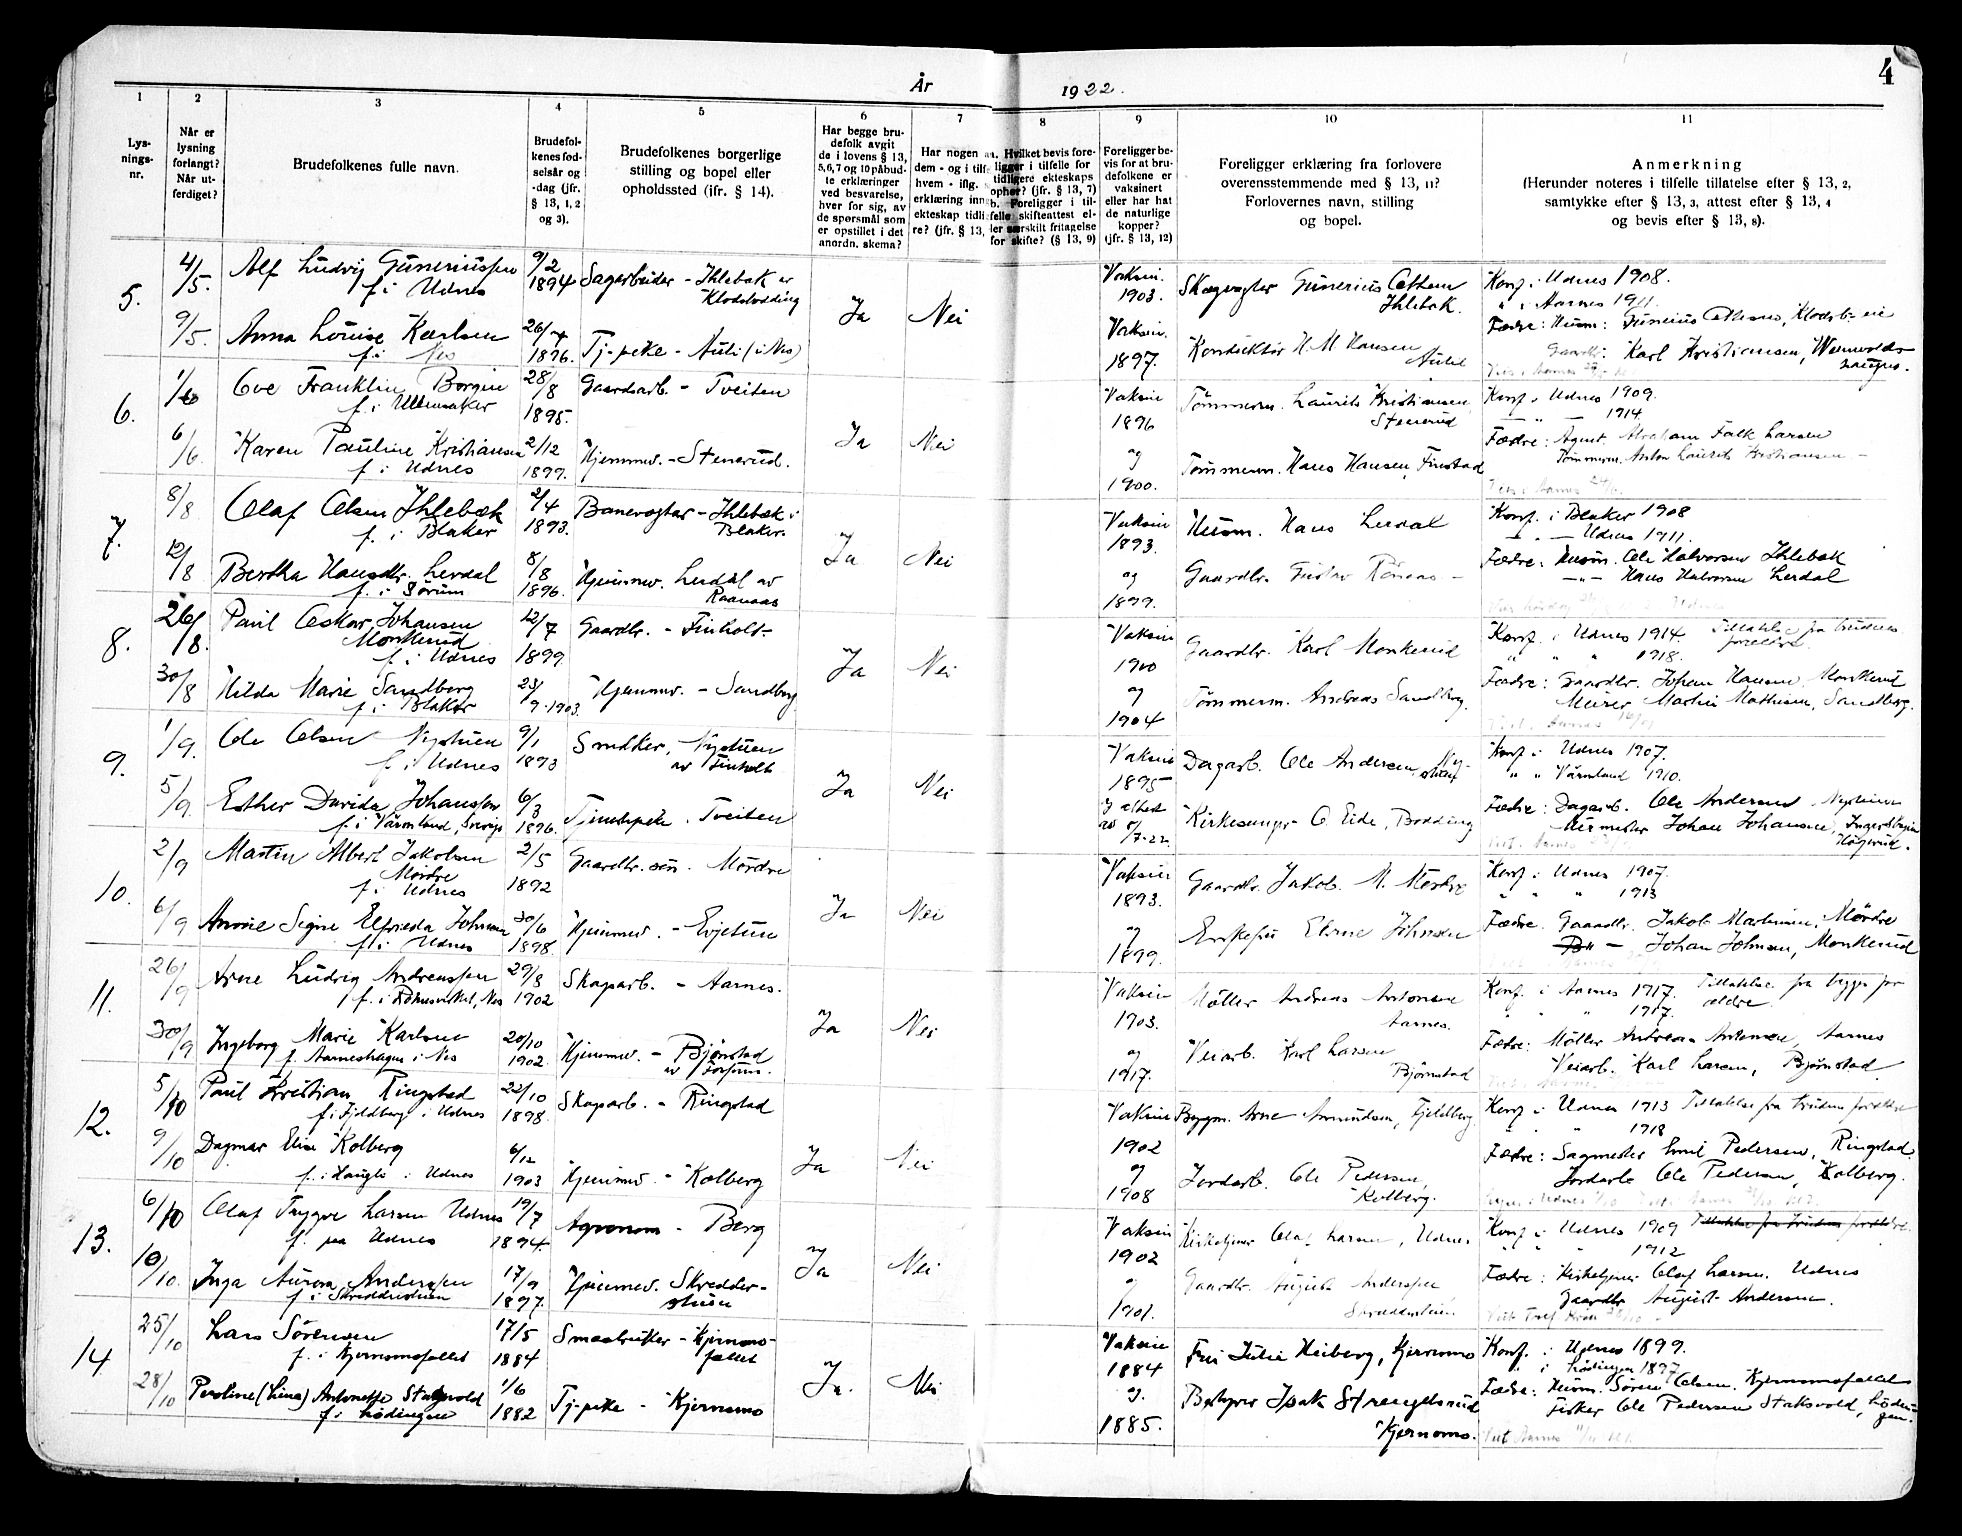 År 1922.
4
1 2 3 4 5 6 7 8 9 10 11
Lys-
nings-
nr.
Når er
lysning
forlangt?
Når ut-
ferdiget?
Brudefolkenes fulle navn.
Brudefol-
kenes fød-
selsår og
-dag (jfr.
§ 13, 1, 2
og 3).
Brudefolkenes borgerlige
stilling og bopel eller
opholdssted (ifr. § 14).
Har begge bru-
defolk avgit
de i lovens § 13,
5,6,7 og 10 påbud-
te erklæringer
ved besvarelse,
hver for sig, av
de spørsmål som
er opstillet i det
anordn. skema?
Har nogen av
dem - og i tilf
hvem - iflg.
erklæring inn
ekteskap tidli
re? (jfr. § 13,
a. Hvilket bevis fore-
ligger i tilfelle for
tidligere ekteskaps
ophør? (jfr. § 13, 7)
b. Foreligger i til-
felle skifteattest el-
ler særskilt fritagelse
for skifte? (§ 13, 9)
Foreligger be-
vis for at bru-
defolkene er
vaksinert
eller har hat
de naturlige
kopper?
(jfr. § 13, 12)
Foreligger erklæring fra forlovere
overensstemmende med § 13, 11?
Forlovernes navn, stilling
og bopel.
Anmerkning
(Herunder noteres i tilfelle tillatelse efter § 13, 2,
samtykke efter § 13, 3, attest efter § 13, 4
og bevis efter § 13, 8).
5.
4/5.
Alf Ludvig Guneriussen
f. i Udnes
9/2
1894
Sagarbeider - Ihlebæk av
Klodsbodding
Ja Nei
Vaksin.
1903.
Skogvogter Gunerius Olsen
Ihlebæk.
Konf. i Udnes 1908.
" i Aarnes 1911.
9/5.
Anna Louise Karlsen
f. i Nes
26/4
1896.
Tj-peke - Auli (i Nes)
Vaksin.
1897.
Konduktør H. M Hansen
Aulie
Gaardbr. Karl Kristiansen,
6.
Ove Franklin Borgin
f. i Ullensaker
28/8
1895.
Gaardsarb. - Tveiten
Ja Nei
Vaksin
1896
og
1900.
Tømmerm. Laurits Kristiansen
Stenerud
Konf. i Udnes 1909.
- " - 1914.
6/6.
Karen Pauline Kristiansen
f. i Udnes
2/12
1899.
Hjemmev. - Stenerud.
Tømmerm. Hans Hansen, Finstad
Fædre: Agent. Abraham Falk Larsen
Tømmerm. Anton Laurits Kristiansen -
7.
8/8
Olaf Olsen Ihlebæk
f. i Blaker
2/4
1893.
Banevogter - Ihlebæk i
Blaker.
Ja Nei
Vaksin
1893.
og
1899.
Husm. Hans Lerdal
Konf. i Blaker 1908
- " - Udnes 1911.
12/8
Bertha Hansdtr. Lerdal
f. i Sørum
8/8
1896.
Hjemmev. Lerdal av
Raanaas
Gaardbr. Gustav Rånaas -
Fædre: Husm. Ole Halvorsen Ihlebæk
- " - Hans Halvorsen Lerdal
8.
26/8.
Paul Oskar Johansen
Monkerud
f. i Udnes
12/7
1899.
Gaardbr. - Finholt-
Ja Nei
Vaksin
1900
og
1904
Gaardbr. Karl Monkerud
Konf. i Udnes 1914. Tillatelse fra brudens
" " " 1918. forældre.
30/8
Hilda Marie Sandberg
f. i Blaker
23/9-1903.
Hjemmev. - Sandberg
Tømmerm. Andreas Sandberg.
Fædre: Gaardbr. Johan Hansen Monkerud
Murer Martin Mathisen, Sandberg.
9.
1/9.
Ole Olsen Nystuen
f. i Udnes
9/1
1893
Snedker, Nystuen
av Finholt
Ja Nei
Vaksin
1895
Dagarb. Ole Andersen Ny-
stuen
Konf. i Udnes 1907.
" " Värmland 1910.
5/9.
Esther Davida Johansson
f. i Värmland, Sverige
6/3
1896.
Tjenestepeke. Tveiten.
Kirkesanger O. Eide, Bodding
Fædre: Dagarb. Ole Andersen Nystuen
Murmester Johan Johansen,
10.
2/9
Martin Albert Jakobsen
Mørdre
f. i Udnes
2/5
1892
Gaardbr. søn. Mørdre
Ja Nei
Vaksin
1893.
og
1899.
Gaardbr. Jakob. M. Mørdre
Konf. i Udnes 1907.
" " 1913
6/9
Anne Signe Elfrieda Johnsen
f. i Udnes
30/6
1898.
Hjemmev. - Evjetun
Enkefru Elene Johnsen
Fædre. Gaardbr. Jakob Martinsen, Mørdre
- " - Johan Johnsen, Monkerud
11.
26/9
Arne Ludvig Andreassen
29/8
1902
Skoparb. - Aarnes.
Ja Nei
Vaksin
1903.
og
1917.
Møller Andreas Antonsen
Aarnes.
Konf. i Aarnes 1917. Tillatelse fra begges for
" " " 1917. ældre.
30/9
Ingeborg Marie Karlsen
f. Aarneshagen i Nes
20/10
1902.
Hjemmev. - Bjørnstad
Veiarb. Karl Larsen
Bjørnstad
Fædre: Møller Andreas Antonsen, Aarnes
Veiarb. Karl Larsen, Bjørnstad.
12.
5/10
Paul Kristian Ringstad
f. i Fjeldberg i Udnes
22/10
1898.
Skoparb. - Ringstad
Ja Nei
Vaksin
1902
og
1908
Byggm. Arne Amundsen, Fjeldberg
Konf. i Udnes 1913 Tillatelse fra brudens forældre
" 1918
9/10
Dagmar Elise Kolberg
f. i Haugli i Udnes
6/12
1903
Hjemmev. - Kolberg
Jordarb. Ole Pedersen,
Kolberg.
Fædre: Sagmester Emil Pedersen, Ringstad.
Jordarb Ole Pedersen, Kolberg.
13.
6/10
Olaf Trygve Larsen Udnes
f. paa Udnes
19/7
1894.
Agronom - Berg
Ja Nei
Vaksin
1902
og
1901.
Kirketjener Olaf Larsen, Udnes
Konf. i Udnes 1909 Tillatelse fra brudens forældre.
" " " 1912
10/10.
Inga Aurora Anderssen
f. i Skredderstuen
17/9
1897.
Hjemmev. Skredder-
stuen
Gaardbr. August Anderssen
Skredderstuen
Fædre: Kirketjener Olaf Larsen. Udnes
Gaardbr August Andersen.
14.
25/10
Lars Sørensen
f. i Kjernsmofallet
17/5
1884
Smaabruker - Kjernsmo-
fallet
Ja. Nei
Vaksin
1884
og.
1885.
Fru Julie Heiberg, Kjernsmo
Konf. i Udnes 1899.
" i Lødingen 1897
28/10
Peroline (Lina) Antonette Staksvold
f. i Lødingen
1/6
1882
Tj-peke - Kjernsmo
Bestyrer Isak Strengelsrud
Kjernsmo.
Fædre: Husm. Søren Olsen. Kjernsmofallet
Fisker Ole Pedersen Staksvold, Lødin-
gen.